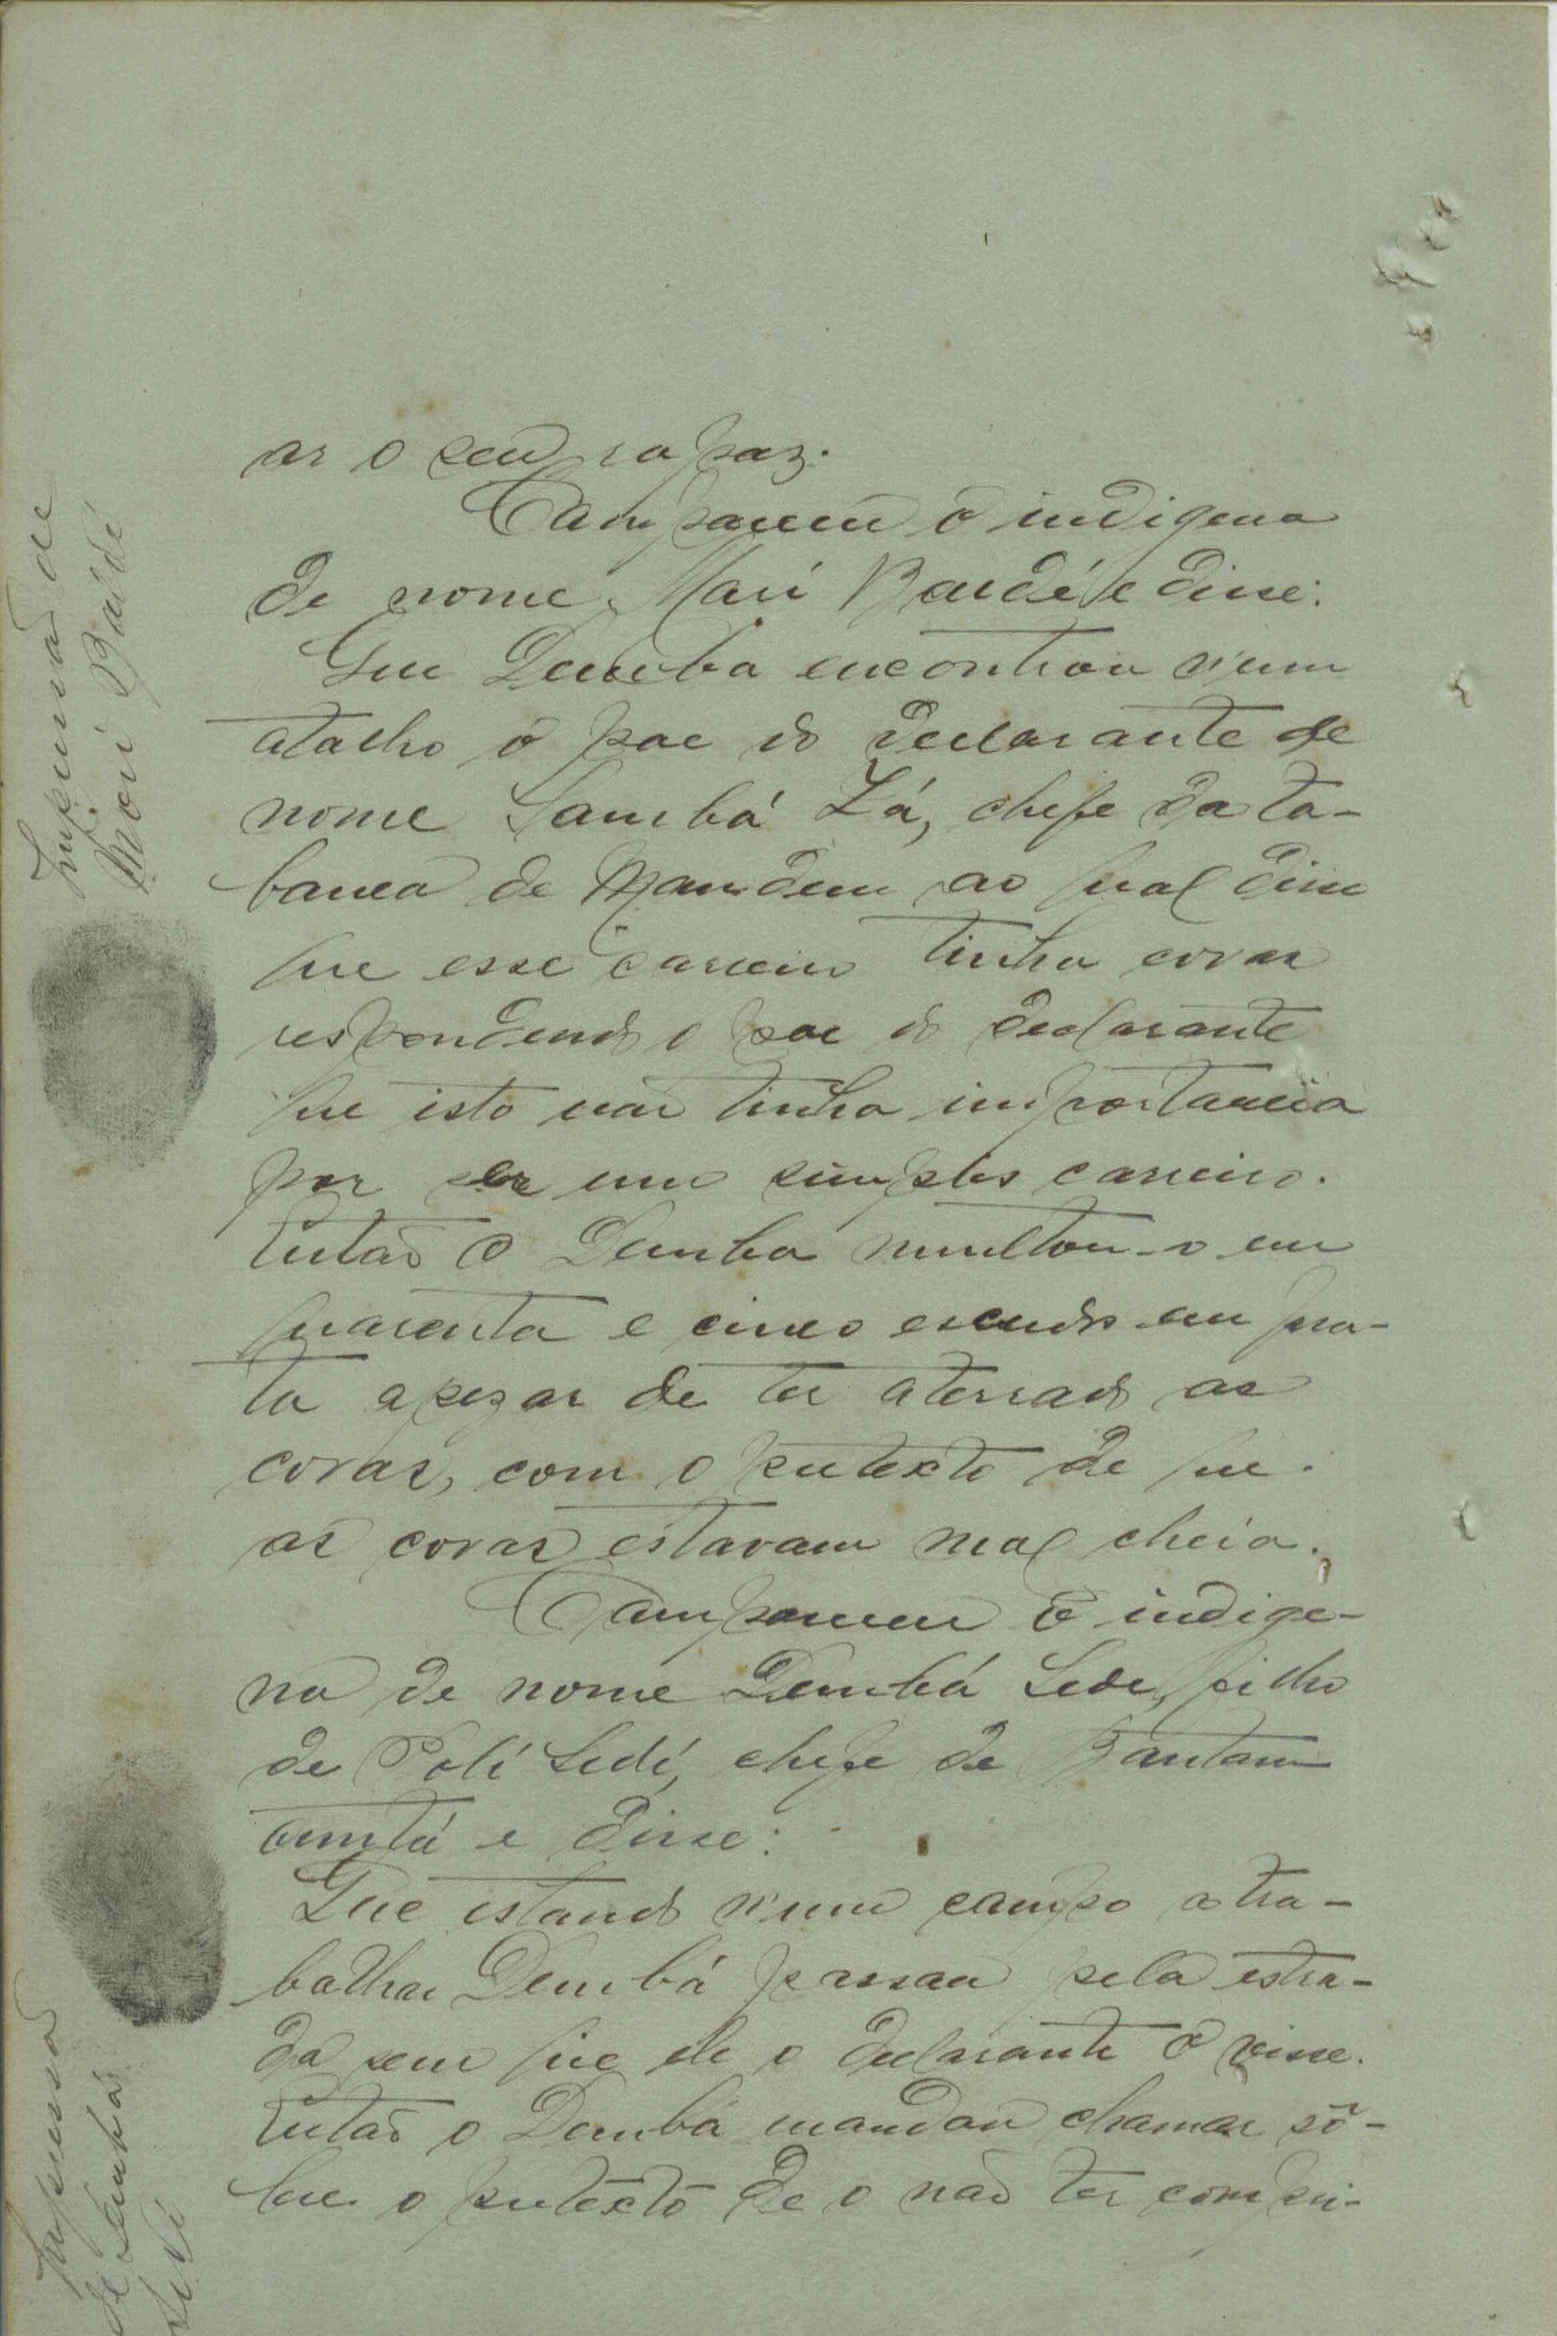 ar o seu rapaz.
Compareceu o indigena
de nome Mori Baldé e disse:
Que Demba encontrou n'um
atalho o pae do declarante de
nome Sambá Lá, chefe da ta-
banca de Mandem ao qual disse
que esse carreiro tinha covas
respondendo o pae do declarante
que isto não tinha importancia
por ser um simples carreiro.
Então o Demba multou-o em
quarenta e cinco escudos em pra-
ta apezar de ter aterrado as
covas, com o pretexto de que
as covas estavam mal cheia.
Compareceu o indige-
na de nome Dembá Sidi, filho
de Polí Sidí, chefe de Bantam
cuntá e disse:
Que estando n'um campo a tra-
balhar Dembá passou pela estra-
da sem que ele o declarante o visse.
Então o Dembá mandou chamar sô-
bre o pretexto de o não ter compri-
Impressão de
Mori Baldé
Impressão
de Dembá
Sidí